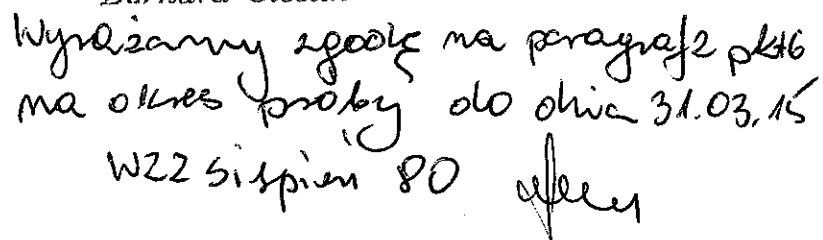 Wyrażamy zgodę na paragraf 2 pkt 6
na okres próby do dnia 31.03.15
WZZ Sierpień 80